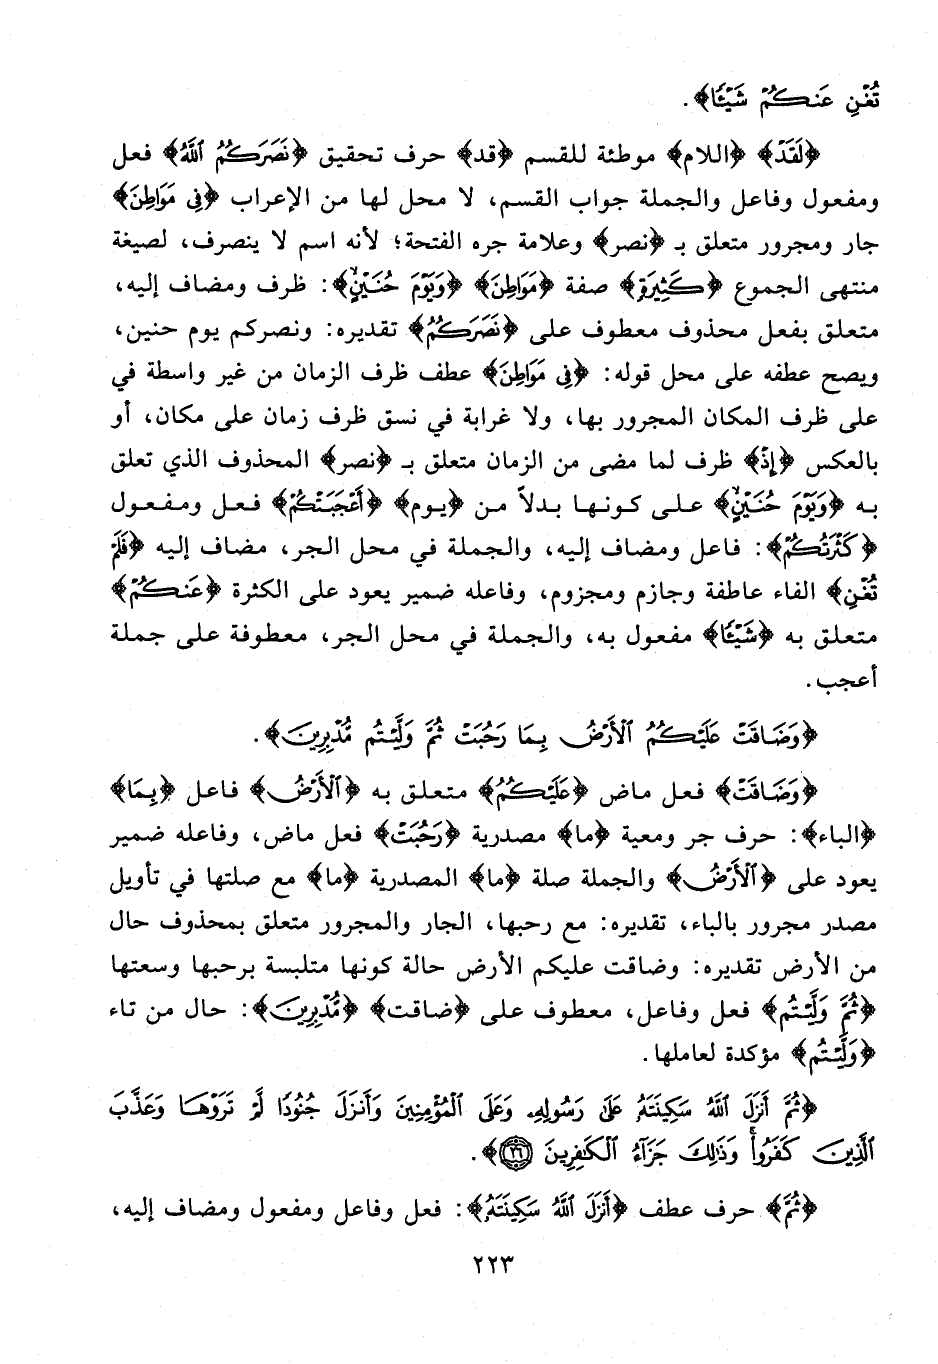 تُغْنِ عَنكُمْ شَيْئًا﴾.
﴿لَقَدْ﴾ ﴿اللام﴾ موطئة للقسم ﴿قد﴾ حرف تحقيق ﴿نَصَرَكُمُ اللَّهُ﴾ فعل
ومفعول وفاعل والجملة جواب القسم، لا محل لها من الإعراب ﴿فِي مَوَاطِنَ﴾
جار ومجرور متعلق بـ ﴿نصر﴾ وعلامة جره الفتحة؛ لأنه اسم لا ينصرف، لصيغة
منتهى الجموع ﴿كَثِيرَةٍ﴾ صفة ﴿مَوَاطِنَ﴾ ﴿وَيَوْمَ حُنَيْنٍ﴾: ظرف ومضاف إليه،
متعلق بفعل محذوف معطوف على ﴿نَصَرَكُمُ﴾ تقديره: ونصركم يوم حنين،
ويصح عطفه على محل قوله: ﴿فِي مَوَاطِنَ﴾ عطف ظرف الزمان من غير واسطة في
على ظرف المكان المجرور بها، ولا غرابة في نسق ظرف زمان على مكان، أو
بالعكس ﴿إِذْ﴾ ظرف لما مضى من الزمان متعلق بـ ﴿نصر﴾ المحذوف الذي تعلق
به ﴿وَيَوْمَ حُنَيْنٍ﴾ على كونها بدلاً من ﴿يوم﴾ ﴿أَعْجَبَتْكُمْ﴾ فعل ومفعول
﴿كَثْرَتُكُمْ﴾: فاعل ومضاف إليه، والجملة في محل الجر، مضاف إليه ﴿فَلَمْ
تُغْنِ﴾ الفاء عاطفة وجازم ومجزوم، وفاعله ضمير يعود على الكثرة ﴿عَنكُمْ﴾
متعلق به ﴿شَيْئًا﴾ مفعول به، والجملة في محل الجر، معطوفة على جملة
أعجب.
﴿وَضَاقَتْ عَلَيْكُمُ الْأَرْضُ بِمَا رَحُبَتْ ثُمَّ وَلَّيْتُم مُّدْبِرِينَ﴾.
﴿وَضَاقَتْ﴾ فعل ماض ﴿عَلَيْكُمُ﴾ متعلق به ﴿الْأَرْضُ﴾ فاعل ﴿بِمَا﴾
﴿الباء﴾: حرف جر ومعية ﴿ما﴾ مصدرية ﴿رَحُبَتْ﴾ فعل ماض، وفاعله ضمير
يعود على ﴿الْأَرْضُ﴾ والجملة صلة ﴿ما﴾ المصدرية ﴿ما﴾ مع صلتها في تأويل
مصدر مجرور بالباء، تقديره: مع رحبها، الجار والمجرور متعلق بمحذوف حال
من الأرض تقديره: وضاقت عليكم الأرض حالة كونها متلبسة برحبها وسعتها
﴿ثُمَّ وَلَّيْتُم﴾ فعل وفاعل، معطوف على ﴿ضاقت﴾ ﴿مُّدْبِرِينَ﴾: حال من تاء
﴿وَلَّيْتُم﴾ مؤكدة لعاملها.
﴿ثُمَّ أَنزَلَ اللَّهُ سَكِينَتَهُ عَلَىٰ رَسُولِهِ وَعَلَى الْمُؤْمِنِينَ وَأَنزَلَ جُنُودًا لَّمْ تَرَوْهَا وَعَذَّبَ
الَّذِينَ كَفَرُوا ۚ وَذَٰلِكَ جَزَاءُ الْكَافِرِينَ ﴿٢٦﴾﴾.
﴿ثُمَّ﴾ حرف عطف ﴿أَنزَلَ اللَّهُ سَكِينَتَهُ﴾: فعل وفاعل ومفعول ومضاف إليه،
٢٢٣